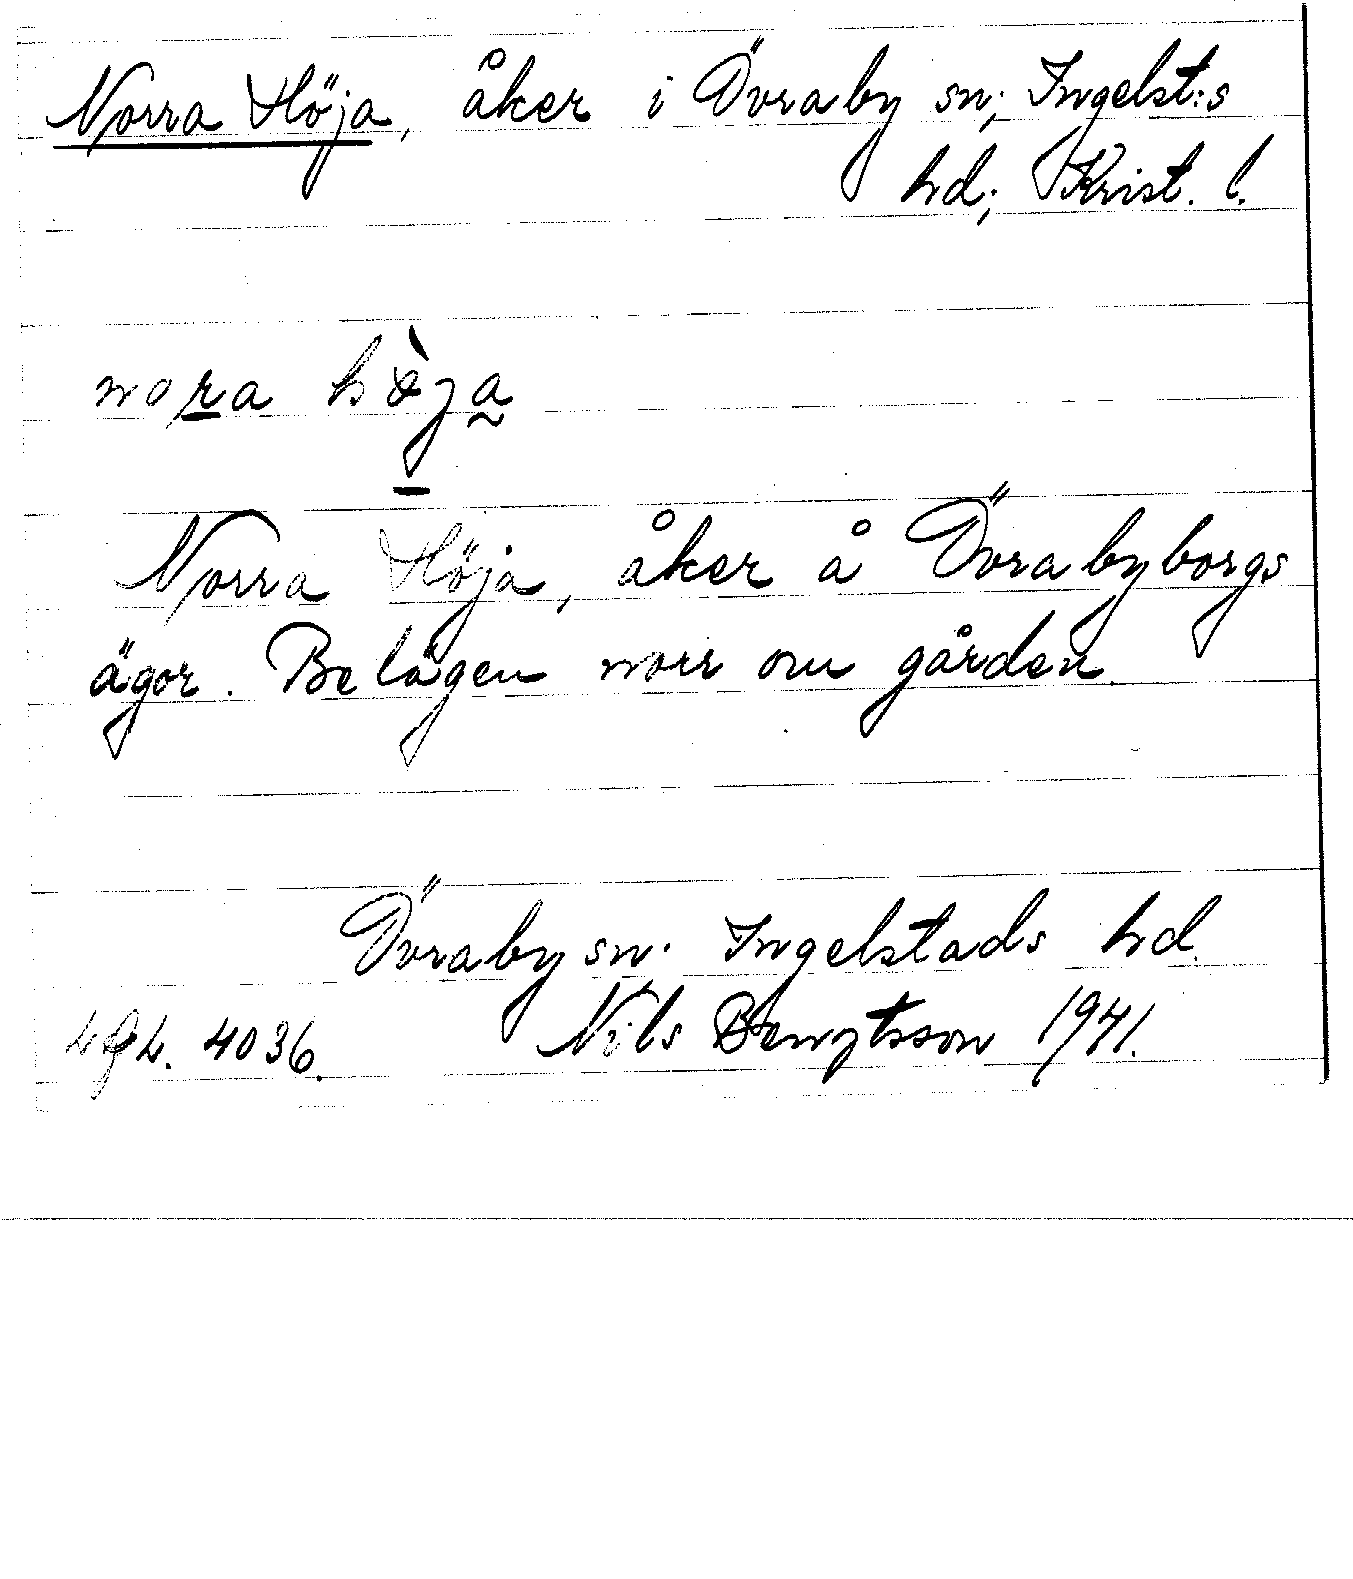 Norra Höja, åker i Övraby sn; Ingelst:s
hd; Krist. l.
nora hö̀ja
Norra Höja, åker å Övrabyborgs
ägor. Belägen norr om gården.
Övraby sn. Ingelstads hd.
4036. Nils Bengtsson 1941.